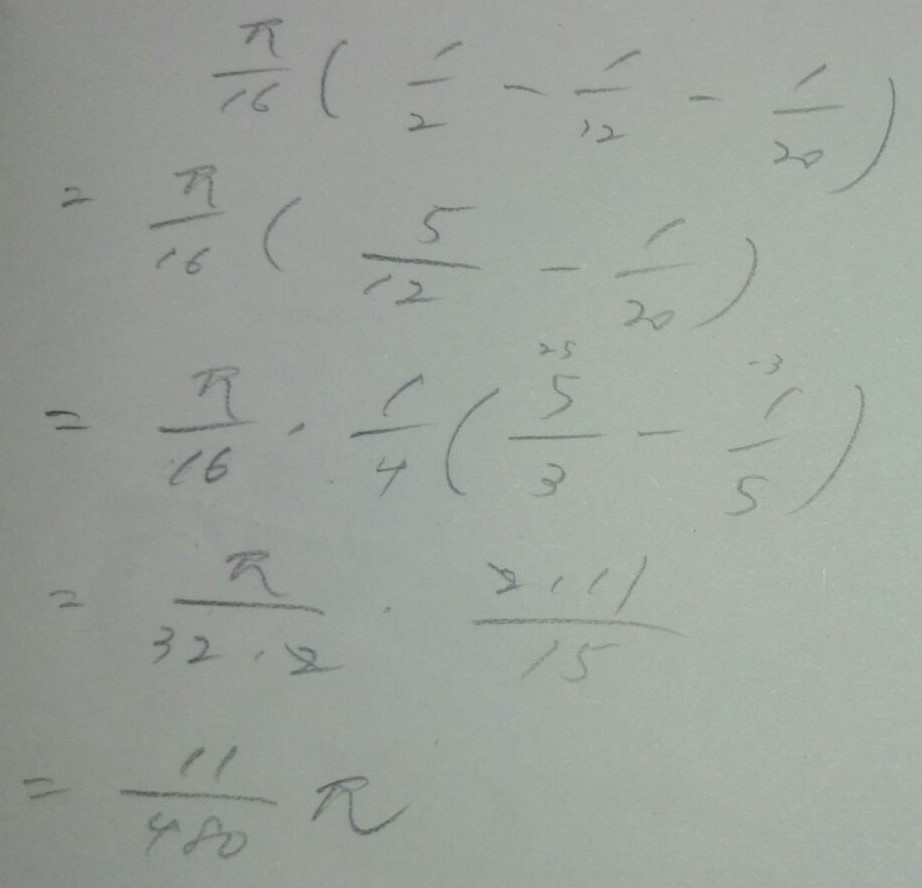 π/16 ( 1/2 - 1/12 - 1/20 )
= π/16 ( 5/12 - 1/20 )
= π/16 · 1/4 ( 25 5/3 - 3 1/5 )
= π/32·2 · 2·11/15
= 11/480 π